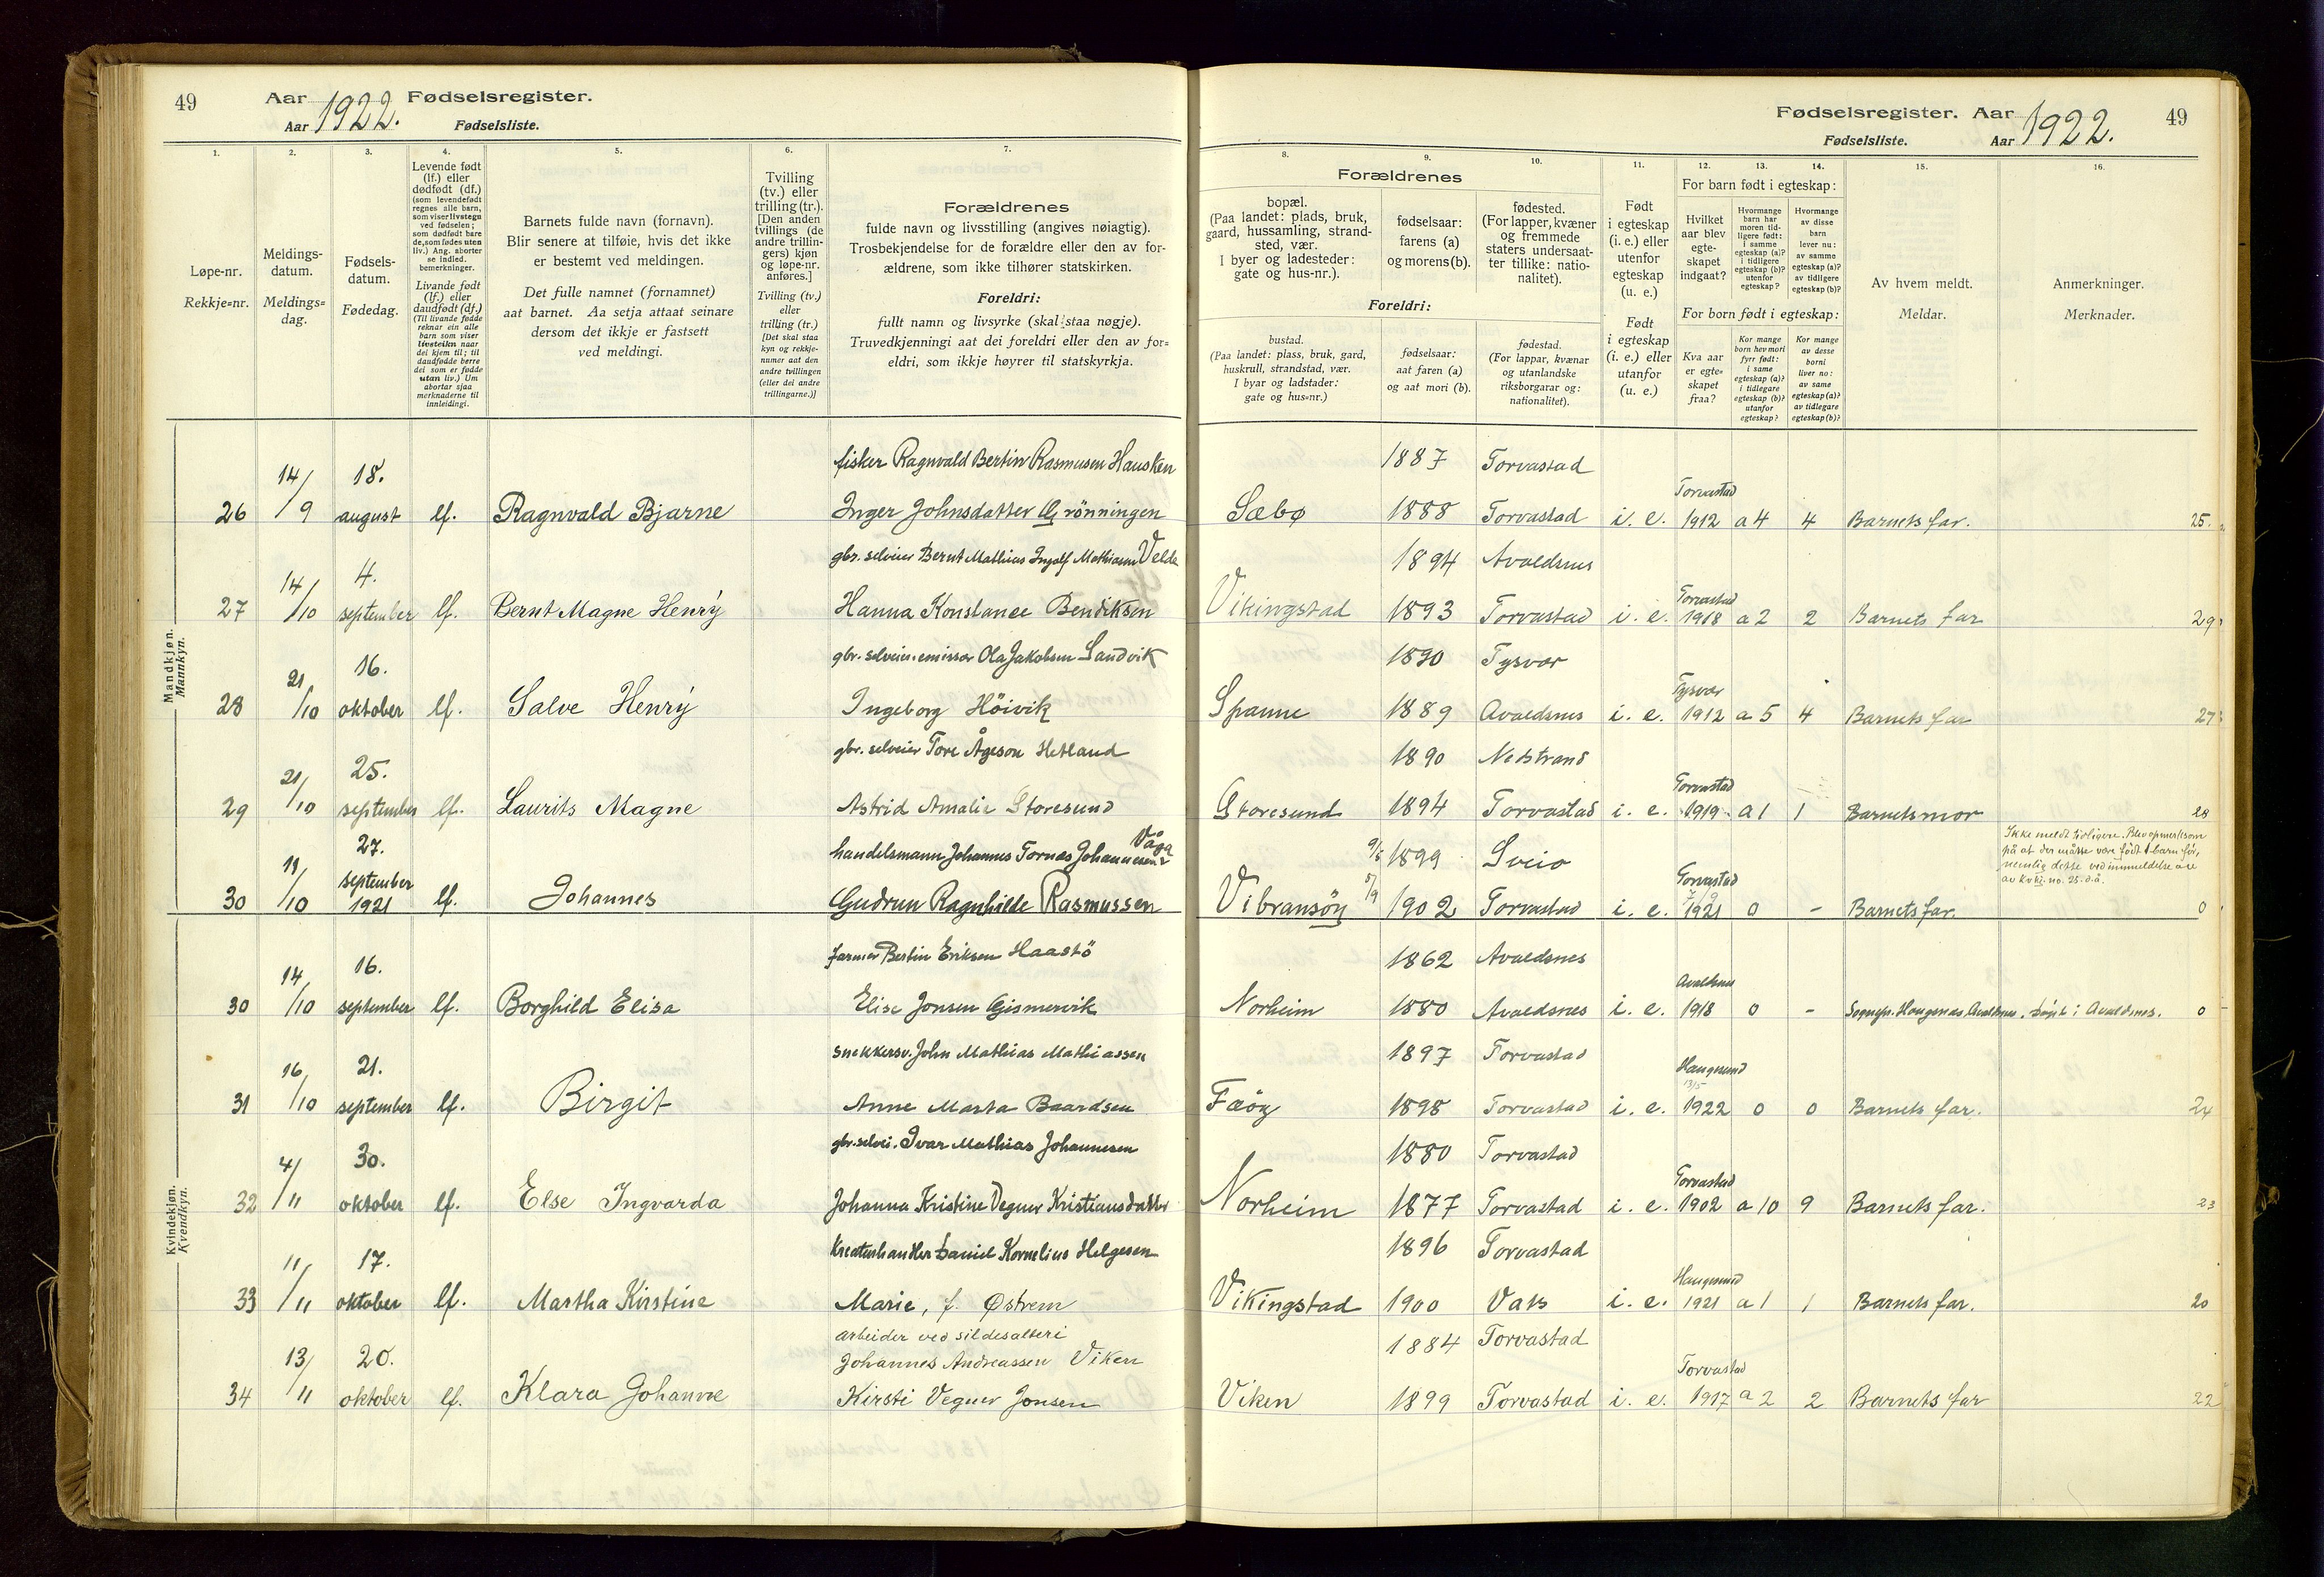 49 Aar 1922. Fødselsregister.
Aar Fødselsliste.
1. 2. 3. 4. 5. 6. 7.
Løpe-nr.
Rekkje=nr.
Meldings-
datum.
Meldings=
dag.
Fødsels-
datum.
Fødedag.
Levende født
(lf.) eller
dødfødt (df.)
(som levendefødt
regnes alle barn,
som viser livstegn
ved fødselen;
som dødfødt bare
de, som fødes uten
liv.) Ang. aborter
se indled.
bemerkninger.
Livande født
(lf.) eller
daudfødt (df.)
(Til livande fødde
reknar ein alle
barn som viser
livsteikn naar
dei kjem til; til
daudfødde berre
dei som er fødde
utan liv.) Um
abortar sjaa
merknaderne til
innleidingi.
Barnets fulde navn (fornavn).
Blir senere at tilføie, hvis det ikke
er bestemt ved meldingen.
Det fulle namnet (fornamnet)
aat barnet. Aa setja attaat seinare
dersom det ikkje er fastsett
ved meldingi.
Tvilling
(tv.) eller
trilling (tr.).
[Den anden
tvillings (de
andre trillin-
gers) kjøn
og løpe-nr.
anføres.]
Tvilling (tv.)
eller
trilling (tr.)
[Det skal staa
kyn og rekkje-
numer aat den
andre tvillingen
(eller dei andre
trillingarne.)]
Forældrenes
fulde navn og livsstilling (angives nøiagtig).
Trosbekjendelse for de forældre eller den av for-
ældrene, som ikke tilhører statskirken.
Foreldri:
fullt namn og livsyrke (skal staa nøgje).
Truvedkjenningi aat dei foreldri eller den av for=
eldri, som ikkje høyrer til statskyrkja.
Mandkjøn.
Mannkyn.
fisker Ragnvald Bertin Rasmusen Hausken
26 14/9 18. august lf. Ragnvald Bjarne Inger Johnsdatter Grönningen
gbr. selveier Bernt Mathias Ingolf Mathiasen Velde
27 14/10 4. september lf. Bernt Magne Henrÿ Hanna Konstance Bendiksen
gbr. selveier. emissær Ola Jakobsen Sandvik
28 21/10 16. oktober lf. Salve Henrÿ Ingeborg Höivik
gbr. selveier Tore Ågeson Hetland
29 21/10 25. september lf. Laurits Magne Astrid Amalie Storesund
handelsmann Johannes Tornes Johannesen Våga
30 19/10 27. september 1921 lf. Johannes Gudrun Ragnhilde Rasmussen
Kvindekjøn.
Kvendkyn.
farmer Bertin Eriksen Haastö
30 14/10 16. september lf. Borghild Elisa Elise Jonsen Gismervik
snekkersv. John Mathias Mathiassen
31 16/10 21. september lf. Birgit Anne Marta Baardsen
gbr. selvei. Ivar Mathias Johannesen
32 4/11 30. oktober lf. Else Ingvarda Johanna Kristine Vegner Kristiansdatter
Kreaturhandler Daniel Kornelius Helgesen
33 11/11 17. oktober lf. Martha Kirstine Marie, f. Østrem
arbeider ved sildesalteri
Johannes Andreassen Viken
34 13/11 20. oktober lf. Klara Johanne Kirsti Vegner Jonsen
Fødselsregister. Aar 1922. 49
Fødselsliste. Aar
8. 9. 10. 11. 12. 13. 14. 15. 16.
Forældrenes
bopæl.
(Paa landet: plads, bruk,
gaard, hussamling, strand-
sted, vær.
I byer og ladesteder:
gate og hus-nr.).
fødselsaar:
farens (a)
og morens (b).
fødested.
(For lapper, kvæner
og fremmede
staters undersaat-
ter tillike: natio-
nalitet).
Foreldri:
bustad.
(Paa landet: plass, bruk, gard,
huskrull, strandstad, vær.
I byar og ladstader:
gate og hus=nr.)
fødselsaar:
aat faren (a)
og aat mori (b).
fødestad.
(For lappar, kvænar
og utanlandske
riksborgarar og:
nationalitet).
Født
i egteskap
(i. e.) eller
utenfor
egteskap
(u. e.)
Født
i egteskap
(i. e.) eller
utanfor
(u. e.)
For barn født i egteskap:
Hvilket
aar blev
egte-
skapet
indgaat?
Hvormange
barn har
moren tid-
ligere født:
i samme
egteskap (a)?
i tidligere
egteskap (b)?
utenfor
egteskap?
Hvormange
av disse
barn
lever nu:
av samme
egteskap (a)?
av tidligere
egteskap (b)?
For born født i egteskap:
Kva aar
er egte=
skapet
fraa?
Kor mange
born hev mori
fyrr født:
i same
egteskap (a)?
i tidlegare
egteskap (b)?
utanfor
egteskap?
Kor mange
av desse
borni
liver no:
av same
egteskap (a)?
av tidlegare
egteskap (b)?
Av hvem meldt.
Meldar.
Anmerkninger.
Merknader.
1887 Torvastad
Sæbø 1888 Torvastad i. e. Torvastad 1912 a 4 4 Barnets far. 25.
1894 Avaldsnes
Vikingstad 1893 Torvastad i. e. Torvastad 1918 a 2 2 Barnets far 29
1890 Tysvær
Spanne 1889 Avaldsnes i. e. Tysvær 1912 a 5 4 Barnets far 27
1890 Nedstrand
Storesund 1894 Torvastad i. e. Torvastad 1919 a 1 1 Barnets mor 28
9/5 1899 Sveio
Vibransöy 5/9 1902 Torvastad i. e. Torvastad 1921 0 - Barnets far. 0
Ikke meldt tidligere. Blev opmerksom
på at der måtte være født 1 barn før,
nemlig dette ved innmeldelse
av kvkj. no. 25. d.å.
1862 Avaldsnes
Norheim 1880 Avaldsnes i. e. Avaldsnes 1918 0 - Sognepr. Haugenæs, Avaldsnes. Döpt i Avaldsnes. 0
1897 Torvastad
Fæöy 1898 Torvastad i. e. Haugesund 13/5 1922 0 0 Barnets far. 24
1880 Torvastad
Norheim 1877 Torvastad i. e. Torvastad 1902 a 10 9 Barnets far. 23
1896 Torvastad
Vikingstad 1900 Vats i. e. Haugesund 1921 a 1 1 Barnets far. 20
1884 Torvastad
Viken 1899 Torvastad i. e. Torvastad 1917 a 2 2 Barnets far 22